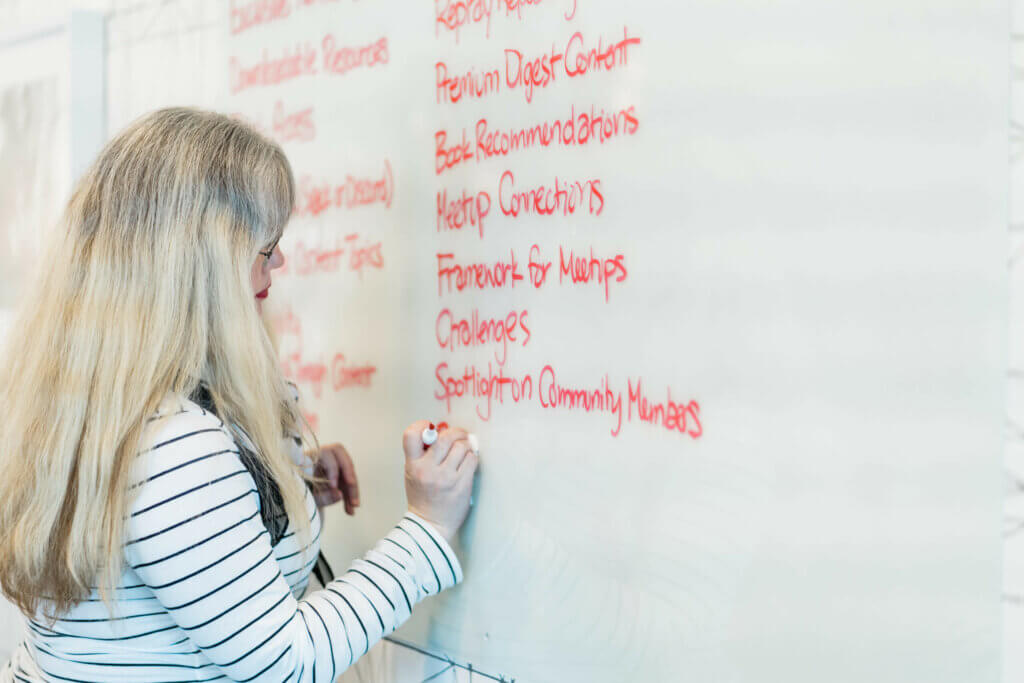 Downloadable Resources
Access
in Discord)
Content Topics
Content
Replay Repository
Premium Digest Content
Book Recommendations
Meetup Connections
Framework for Meetups
Challenges
Spotlight on Community Members